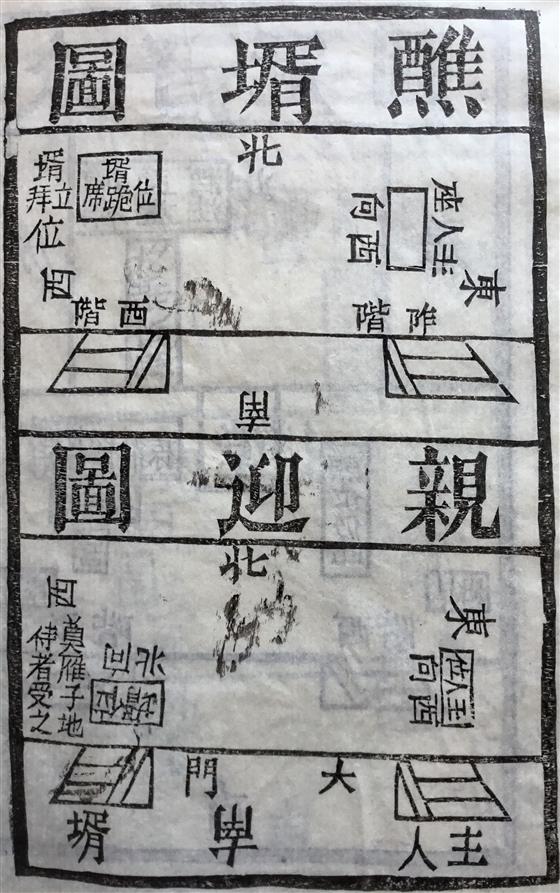 醮壻圖
北
東
主人座
西向
阼階
壻跪位席
壻立
拜位
西
西階
南
親迎圖
北
東
主人位
西向
壻位
北向
西
奠雁子地
侍者受之
大門
主人
南
壻